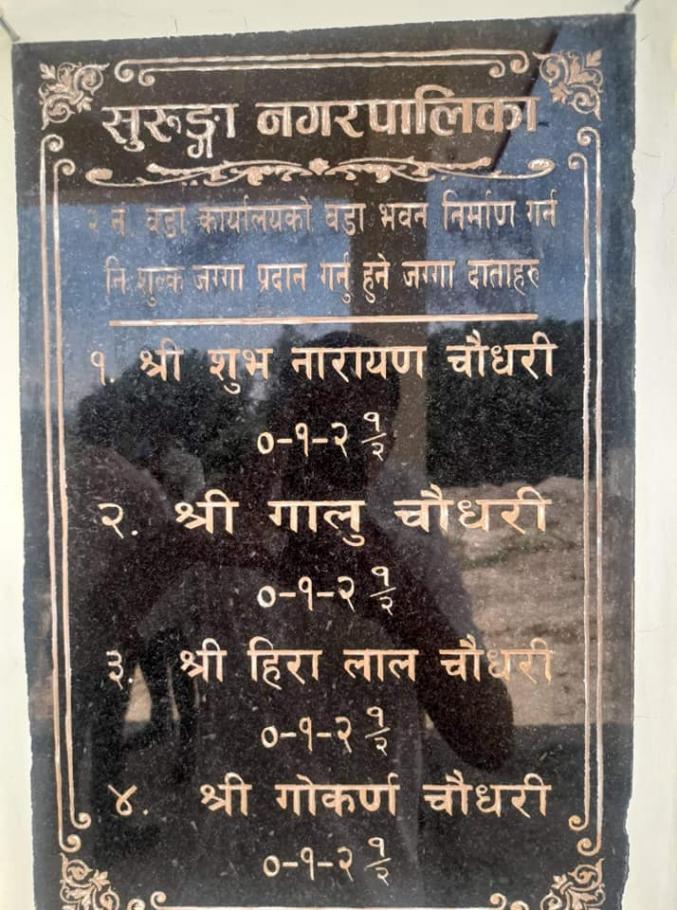 सुरुङ्गा नगरपालिका
२ नं. वडा कार्यालयको वडा भवन निर्माण गर्न
नि शुल्क जग्गा प्रदान गर्नु हुने जग्गा दाताहरु
१. श्री शुभ नारायण चौधरी
०-१-२ १/२
२. श्री गालु चौधरी
०-१-२ १/२
३. श्री हिरा लाल चौधरी
०-१-२ १/२
४. श्री गोकर्ण चौधरी
०-१-२ १/२